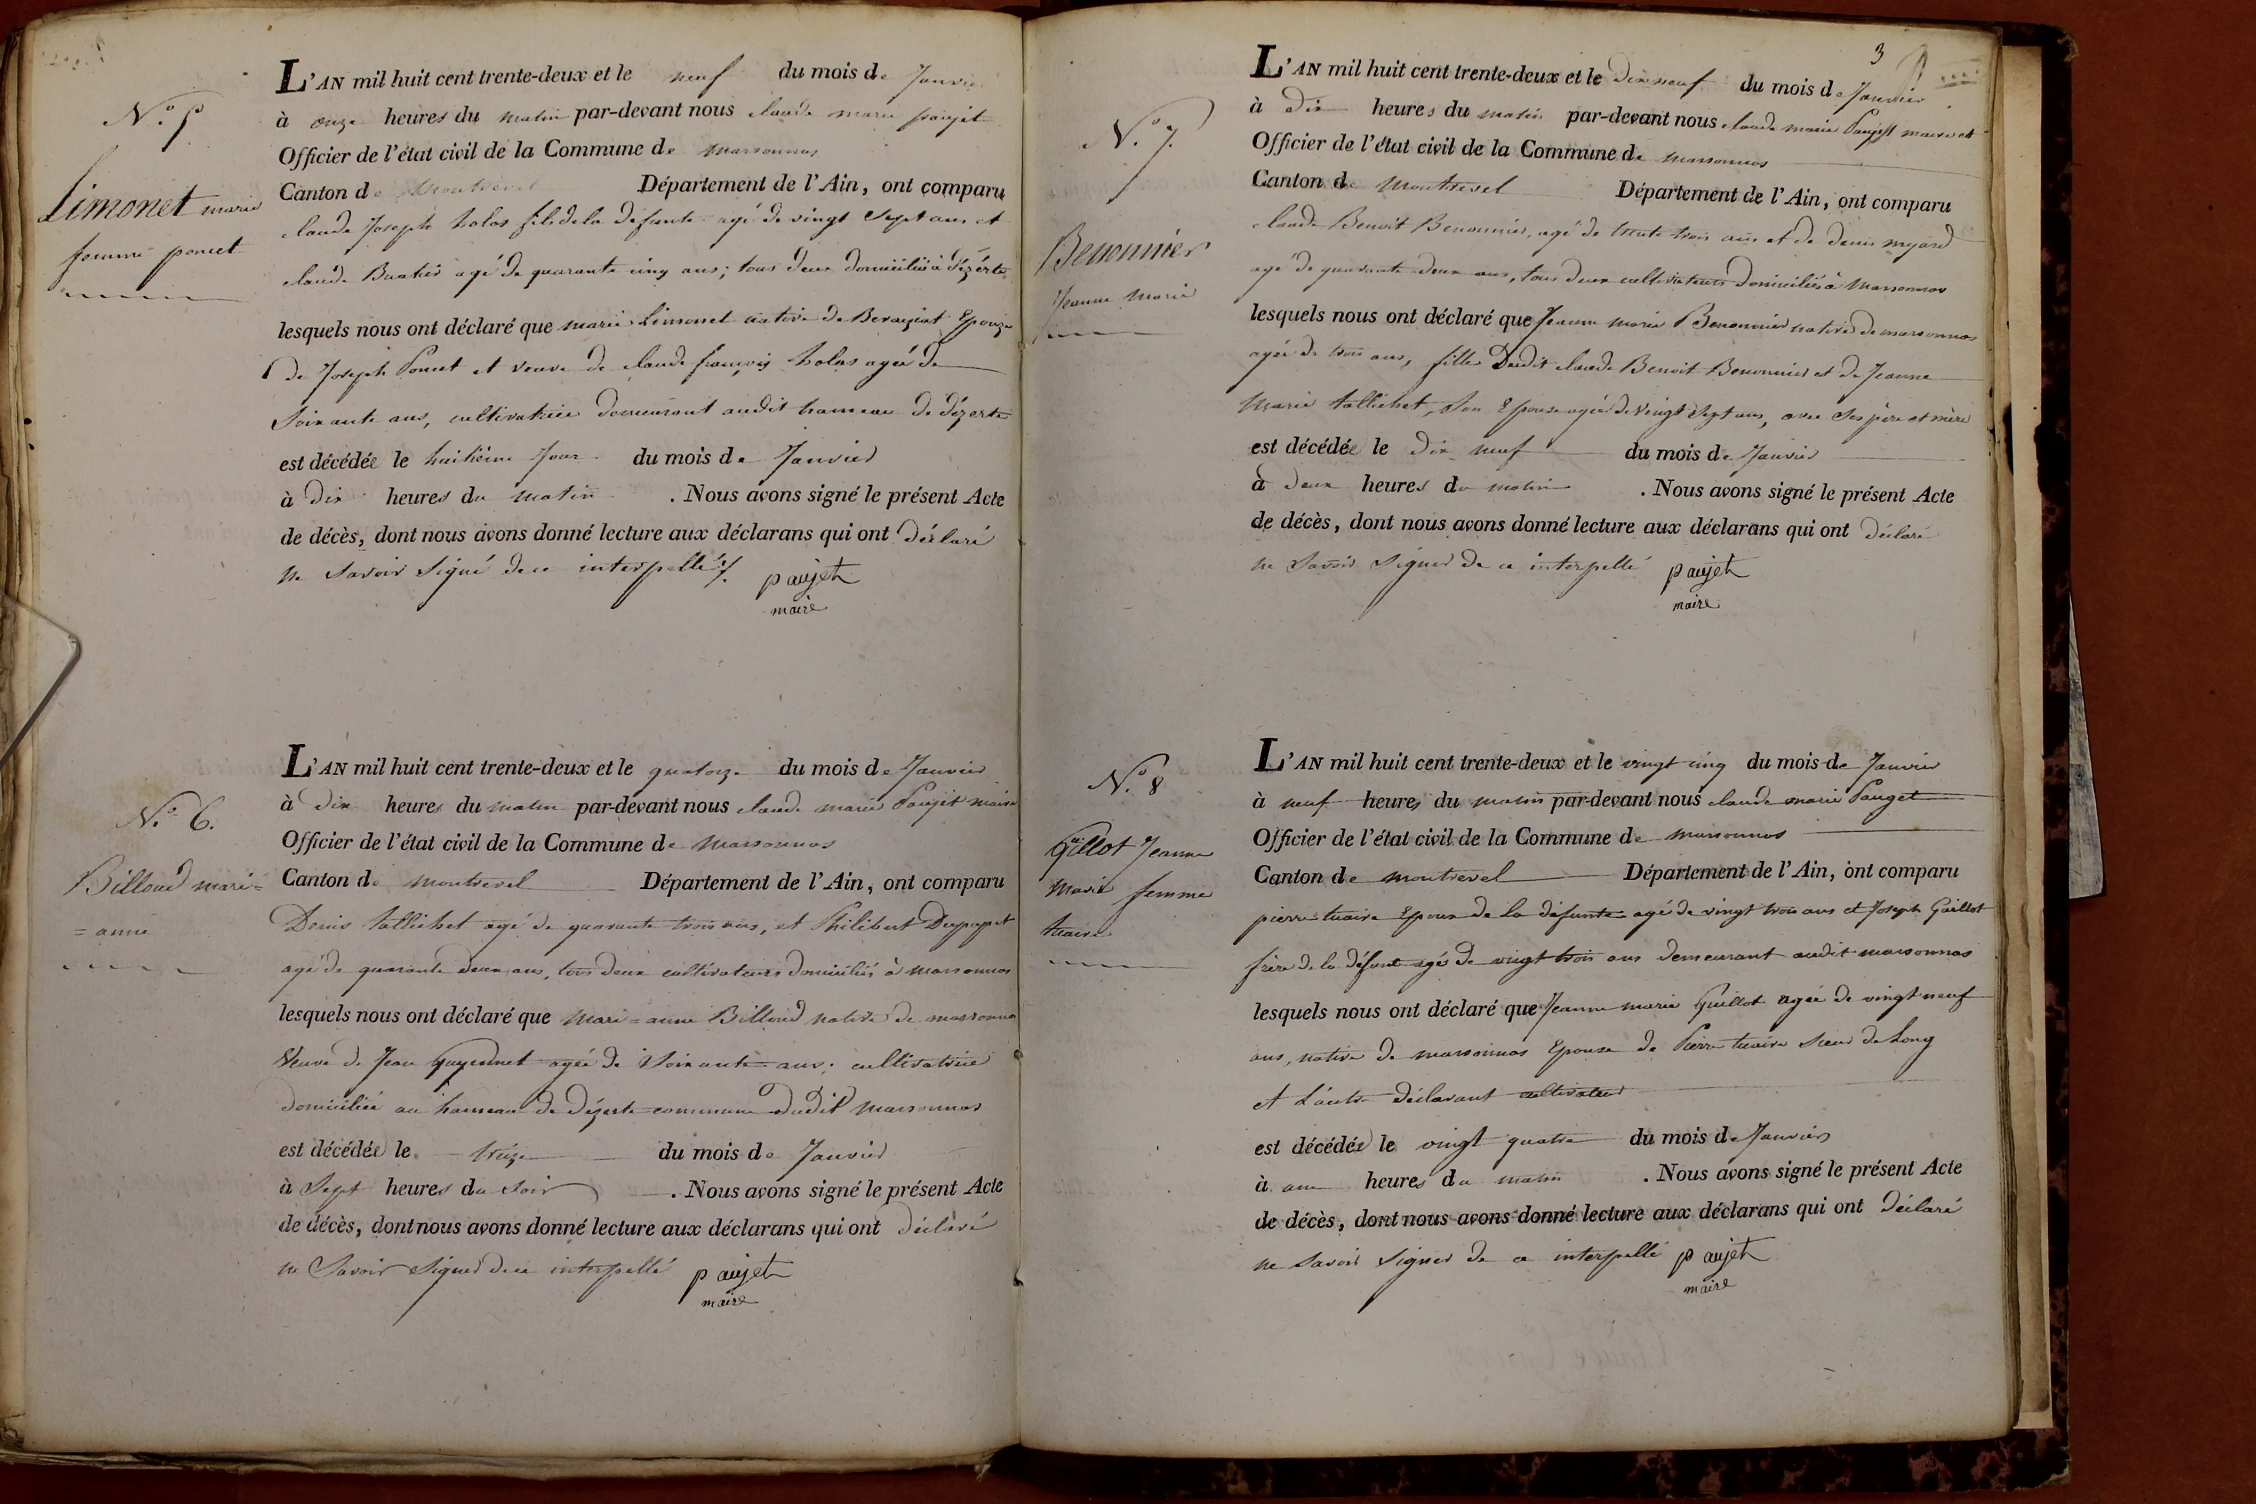 N.° 5
Limonet marie
femme poncet
L'AN mil huit cent trente-deux et le neuf du mois de Janvier
à onze heures du matin par-devant nous claude marie paujet
Officier de l'état civil de la Commune de marsonnas
Canton de Montrevel Département de l'Ain, ont comparu
claude Joseph holas fils de la défunte agé de vingt Sept ans et
claude Buatier agé de quarante cinq ans; tous deux domiciliés à dézerte
lesquels nous ont déclaré que marie Limonet native de Beraziat Epouze
de Joseph Poncet et veuve de claude françois holas agée de
Soixante ans, cultivatrice demeurant audit hameau de dézerte
est décédée le huitième Jour du mois de Janvier
à Dix heures du matin . Nous avons signé le présent Acte
de décès, dont nous avons donné lecture aux déclarans qui ont déclaré
ne Savoir Signé de ce interpellés/.
paujet
maire
N.° 6.
Billoud mari=
=anne
L'AN mil huit cent trente-deux et le quatorze du mois de Janvier
à dix heures du matin par-devant nous claude marie Paujet maire
Officier de l'état civil de la Commune de Marsonnas
Canton de montrevel Département de l'Ain, ont comparu
Denis tallichet agé de quarante trois ans, et Philibert
agé de quarante deux ans, tous deux cultivateurs domiciliés à marsonnas
lesquels nous ont déclaré que Mari=anne Billoud native de marsonnas
Veuve de Jean Guyennet agée de Soixante ans; cultivatrice
domiciliée au hameau de dézerte commune dudit Marsonnas
est décédée le treize du mois de Janvier
à Sept heures du Soir . Nous avons signé le présent Acte
de décès, dont nous avons donné lecture aux déclarans qui ont déclaré
ne Savoir Signer de ce interpellé
paujet
maire
3
N.° 7.
Benonnier
Jeanne Marie
L'AN mil huit cent trente-deux et le dix neuf du mois de Janvier
à Dix heures du matin par-devant nous claude marie Paujet maire et
Officier de l'état civil de la Commune de marsonnas
Canton de Montrevel Département de l'Ain, ont comparu
claude Benoit Benonnier, agé de trente trois ans et de denis myard
agé de quarante deux ans, tous deux cultivateurs domiciliés à Marsonnas
lesquels nous ont déclaré que Jeanne Marie Benonnier native de marsonnas
agée de trois ans, fille Dudit claude Benoit Benonnier et de Jeanne
Marie tallichet, Son Epouse agée de vingt Sept ans, avec Ses père et mère
est décédée le dix neuf du mois de Janvier
à deux heures du matin . Nous avons signé le présent Acte
de décès, dont nous avons donné lecture aux déclarans qui ont déclaré
ne Savoir Signer de ce interpellé
paujet
maire
N.° 8
Gillot Jeanne
Marie femme
tuaire
L'AN mil huit cent trente-deux et le vingt cinq du mois de Janvier
à neuf heures du matin par-devant nous claude marie Pauget
Officier de l'état civil de la Commune de marsonnas
Canton de montrevel Département de l'Ain, ont comparu
pierre tuaire Epoux de la défunte agé de vingt trois ans et Joseph Guillot
frère de la défunte agé de vingt trois ans demeurant audit marsonnas
lesquels nous ont déclaré que Jeanne marie Guillot agée de vingt neuf
ans, native de marsonnas Epouse de Pierre tuaire Sœur de Long
et L'autre déclarant cultivateur
est décédée le vingt quatre du mois de Janvier
à heures du matin . Nous avons signé le présent Acte
de décès, dont nous avons donné lecture aux déclarans qui ont déclaré
ne savoir Signer de ce interpellé
paujet
maire